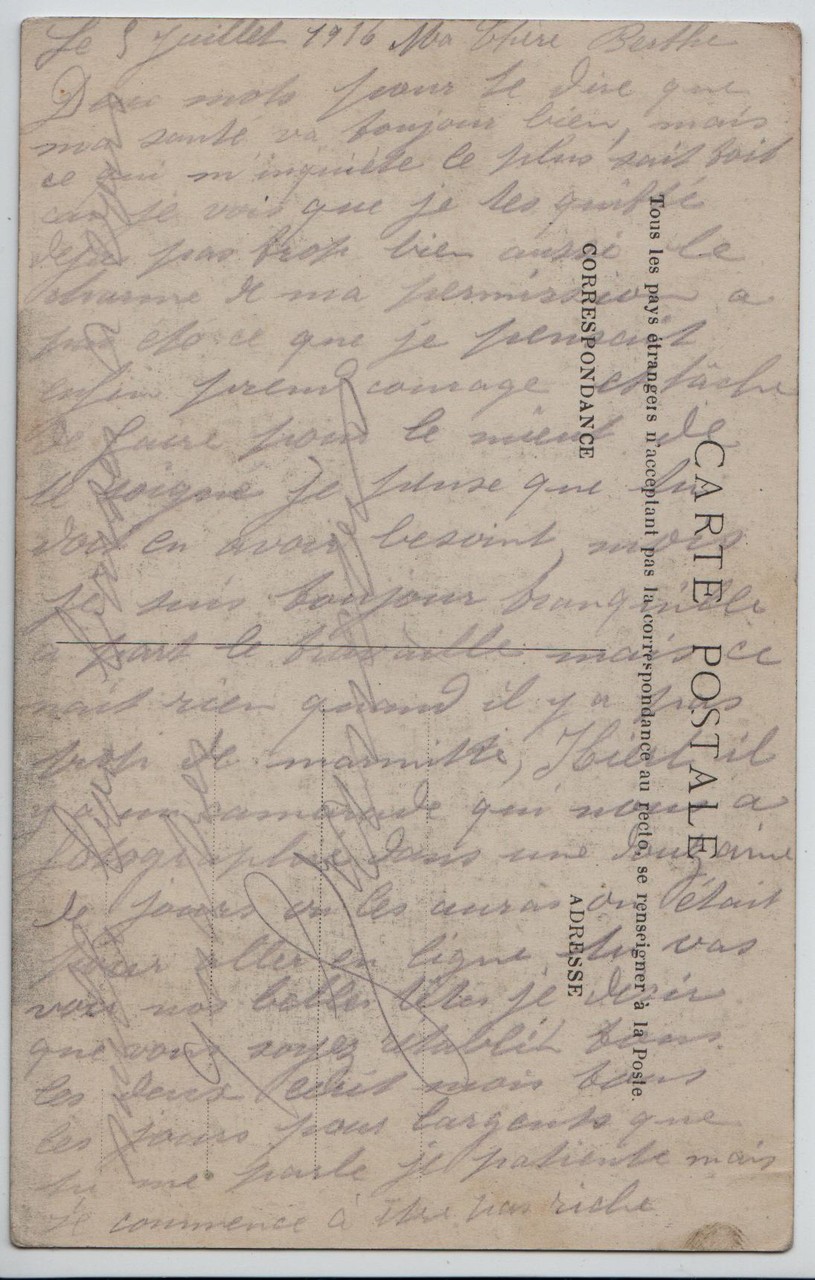 Le 9 Juillet 1916 Ma Chère Berthe
Deux mots pour te dire que
ma santé va toujour bien, mais
ce qui m'inquiète le plus sait toit
car je vois que je tes quitté
deja pas trop bien aussi le
charme de ma permission a
pas eto ce que je pensait
enfin prend courage et tâche
de faire pour le mieut de
te soigné je pense que tu
doit en avoir besoint, mois
je suis toujour tranquille
a part le travaille mais ce
nait rien quand il y a pas
trop de marmitte, Hiert il
y a un camarade qui nous a
fotographié dans une douzaine
de jours on les auras on était
pour aller en ligne tu vas
voir nos belles têtes je désir
que vous soyez rétablit tous
les deux ecrit mois tous
les jours pour largents que
tu me parle je patiente mais
je commence à être pas riche
CARTE POSTALE
Tous les pays étrangers n'acceptant pas la correspondance au recto, se renseigner à la Poste.
CORRESPONDANCE
ADRESSE